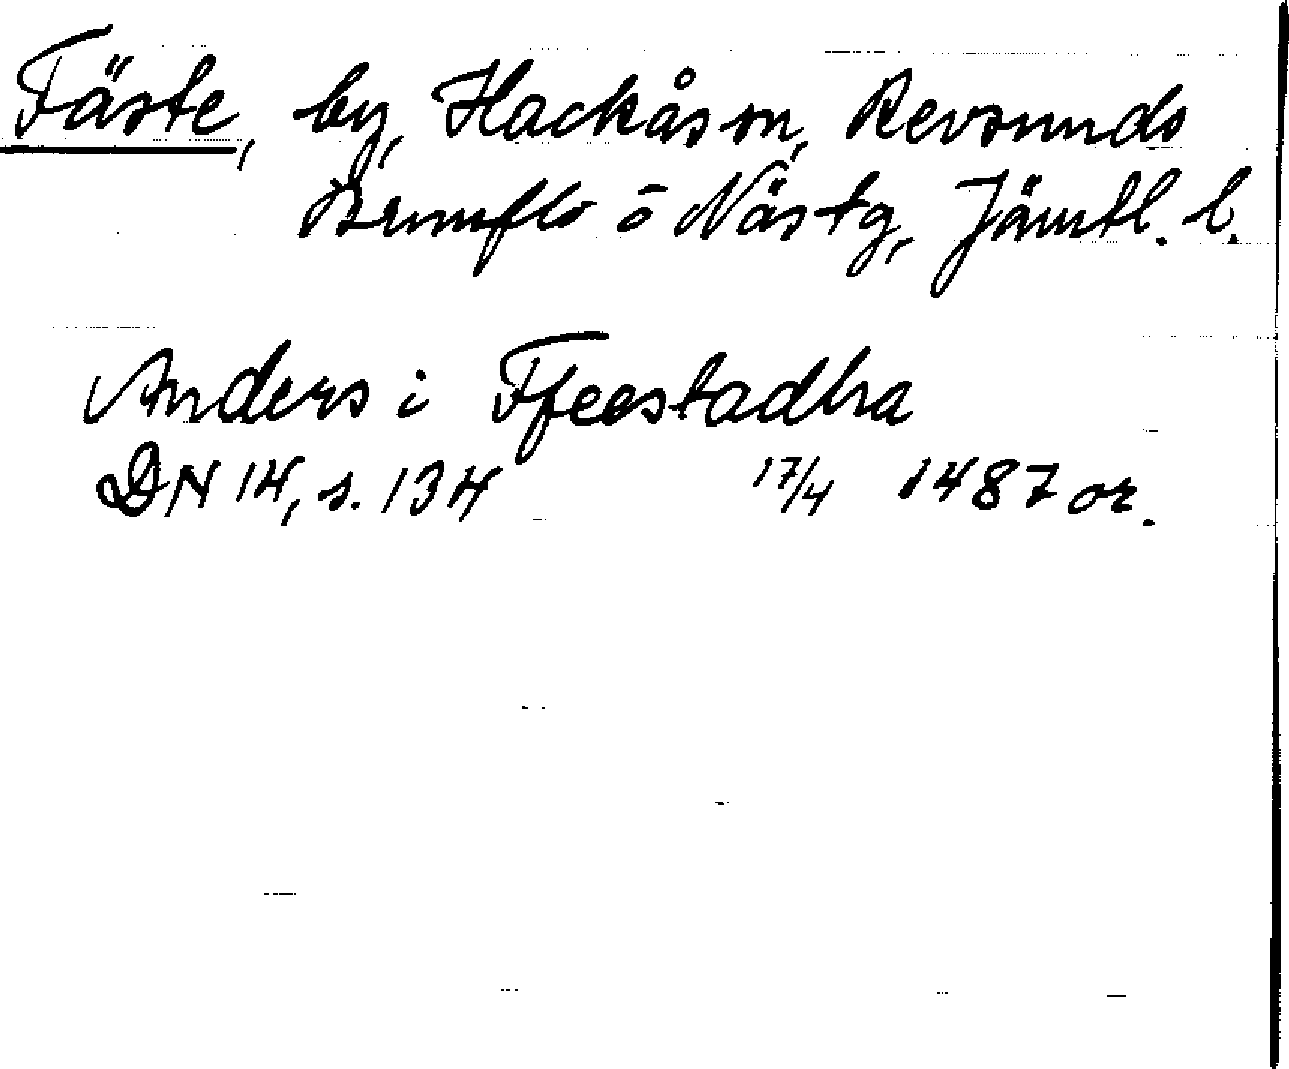 Fäste, by, Hackås sn, Revsunds
Brunflo o Näs tg, Jämtl. l.
Anders i Ffeestadha
DN 14, s. 134 17/4 1487 or.